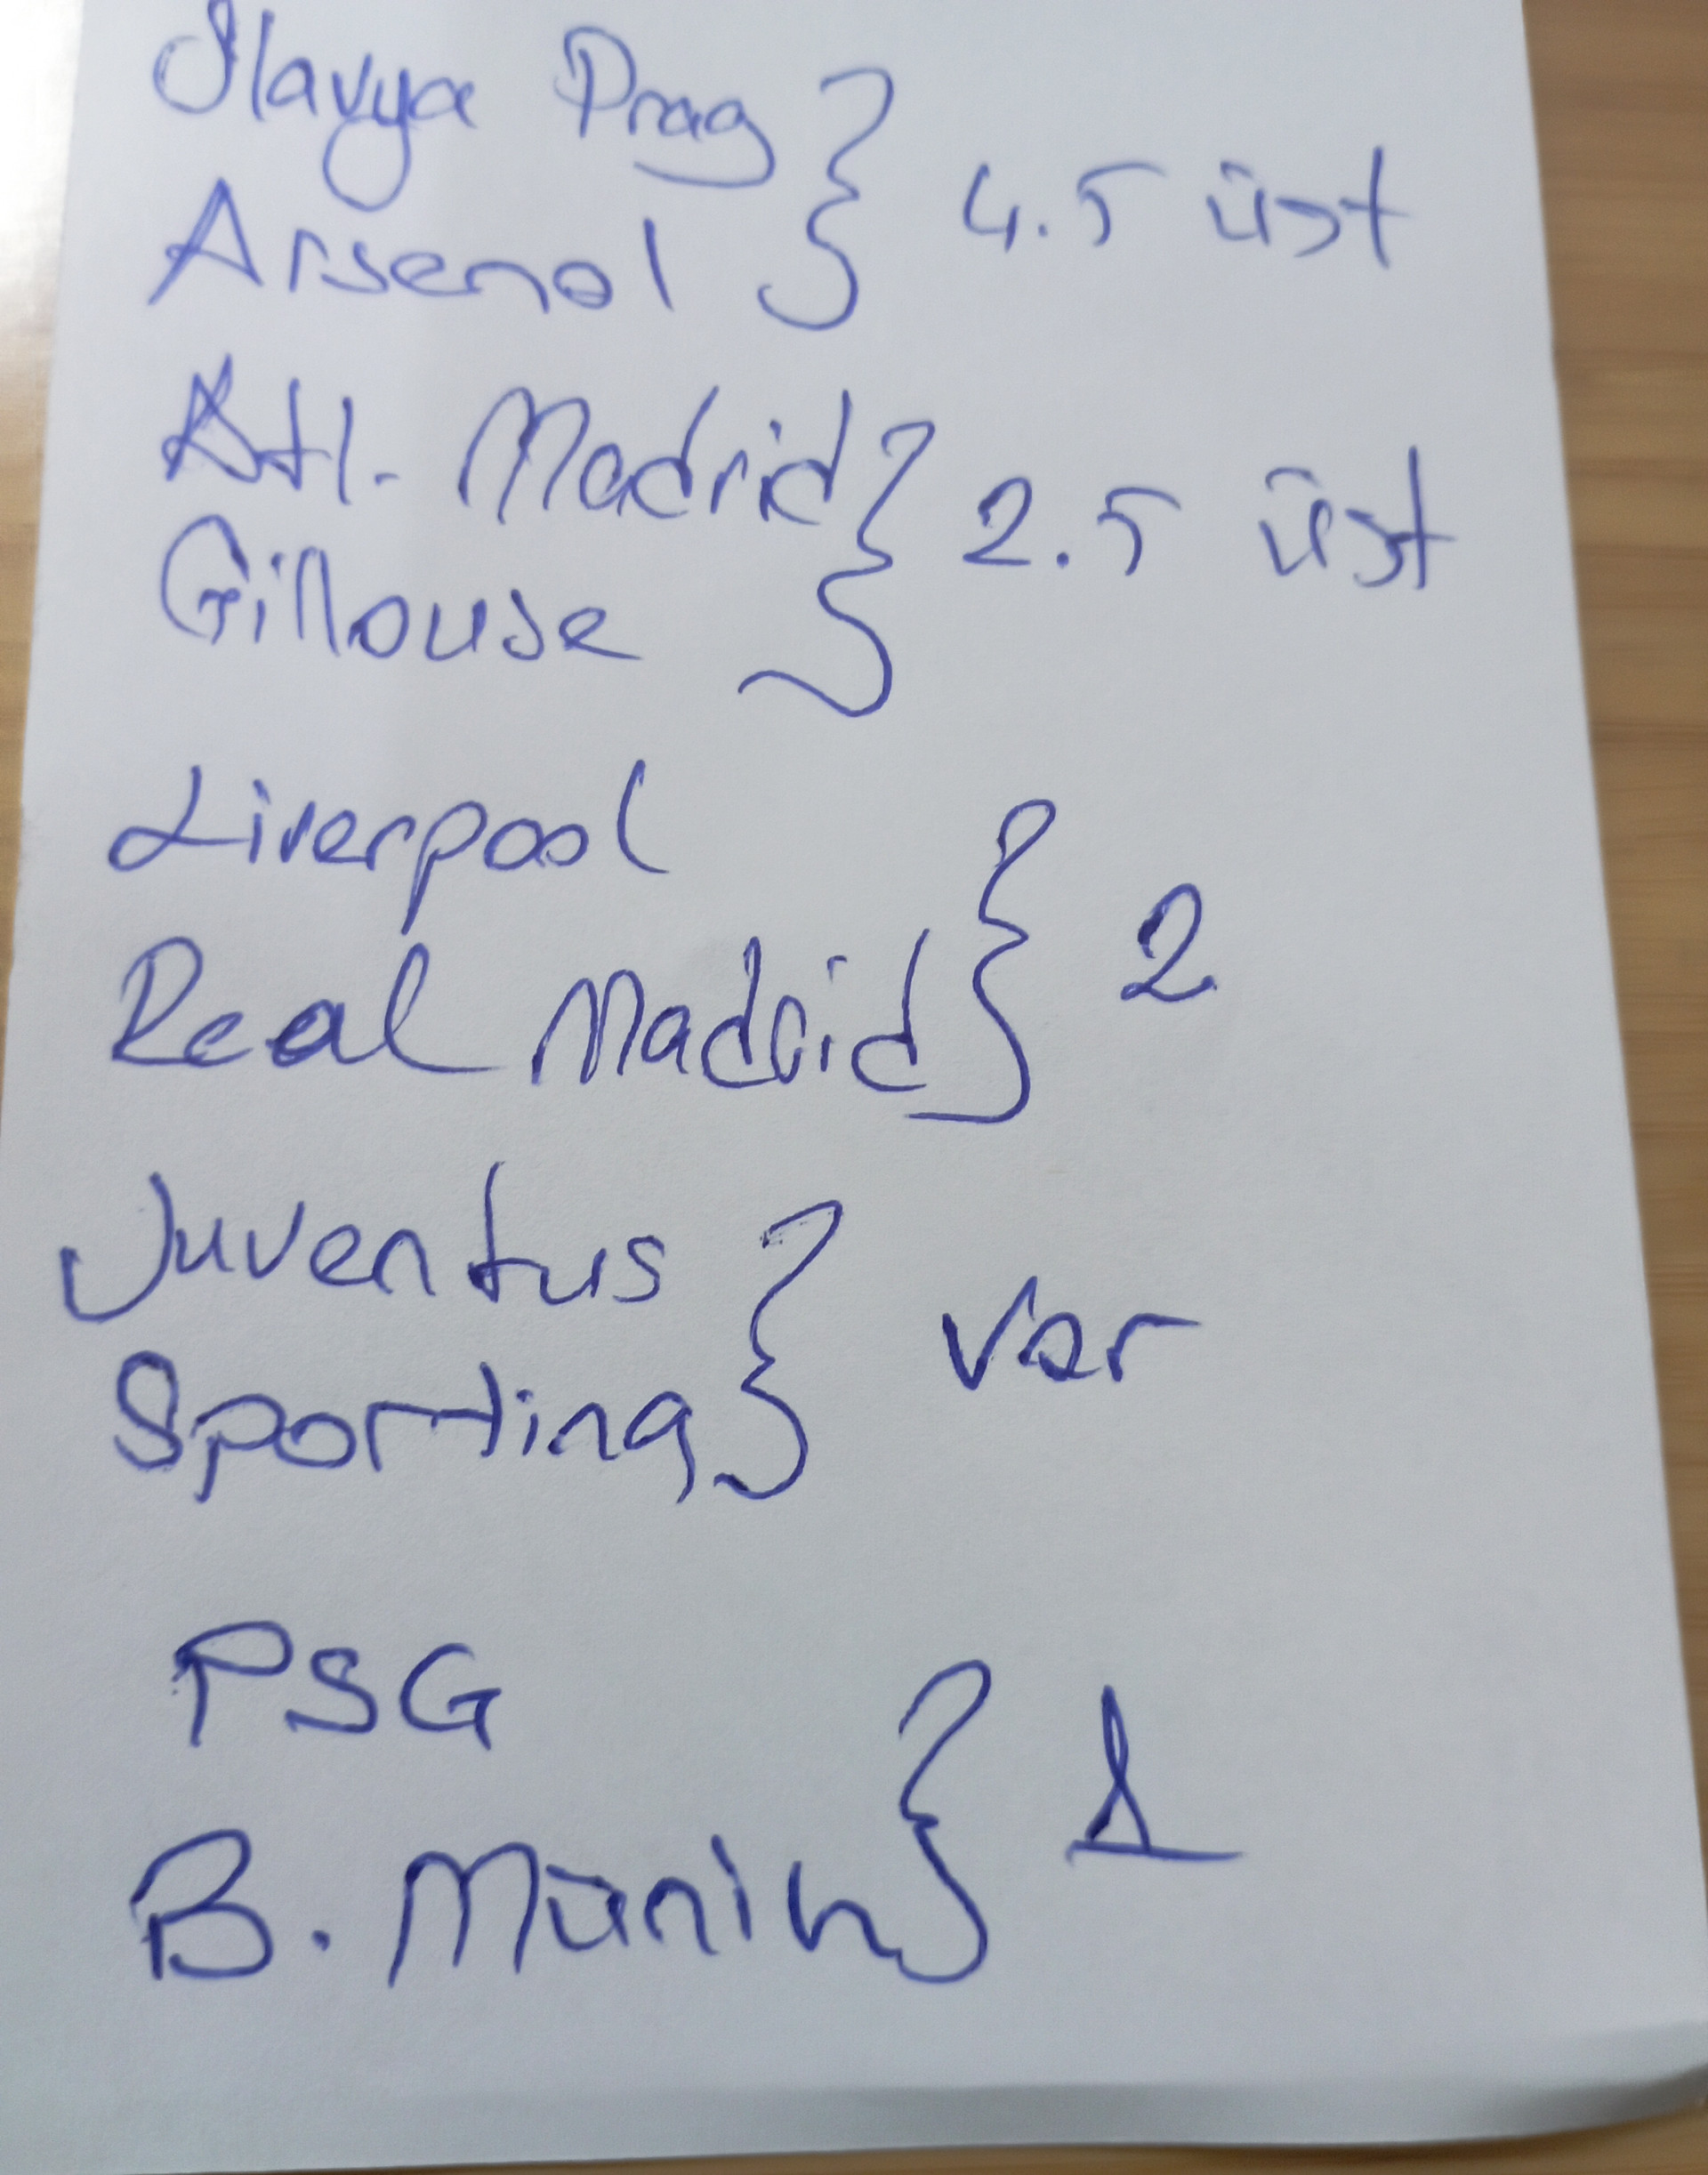 Slavya Prag
Arsenal } 4.5 üst
Atl. Madrid
Gillouse } 2.5 üst
Liverpool
Real Madrid } 2
Juventus
Sporting } Var
PSG
B. Münih } 1